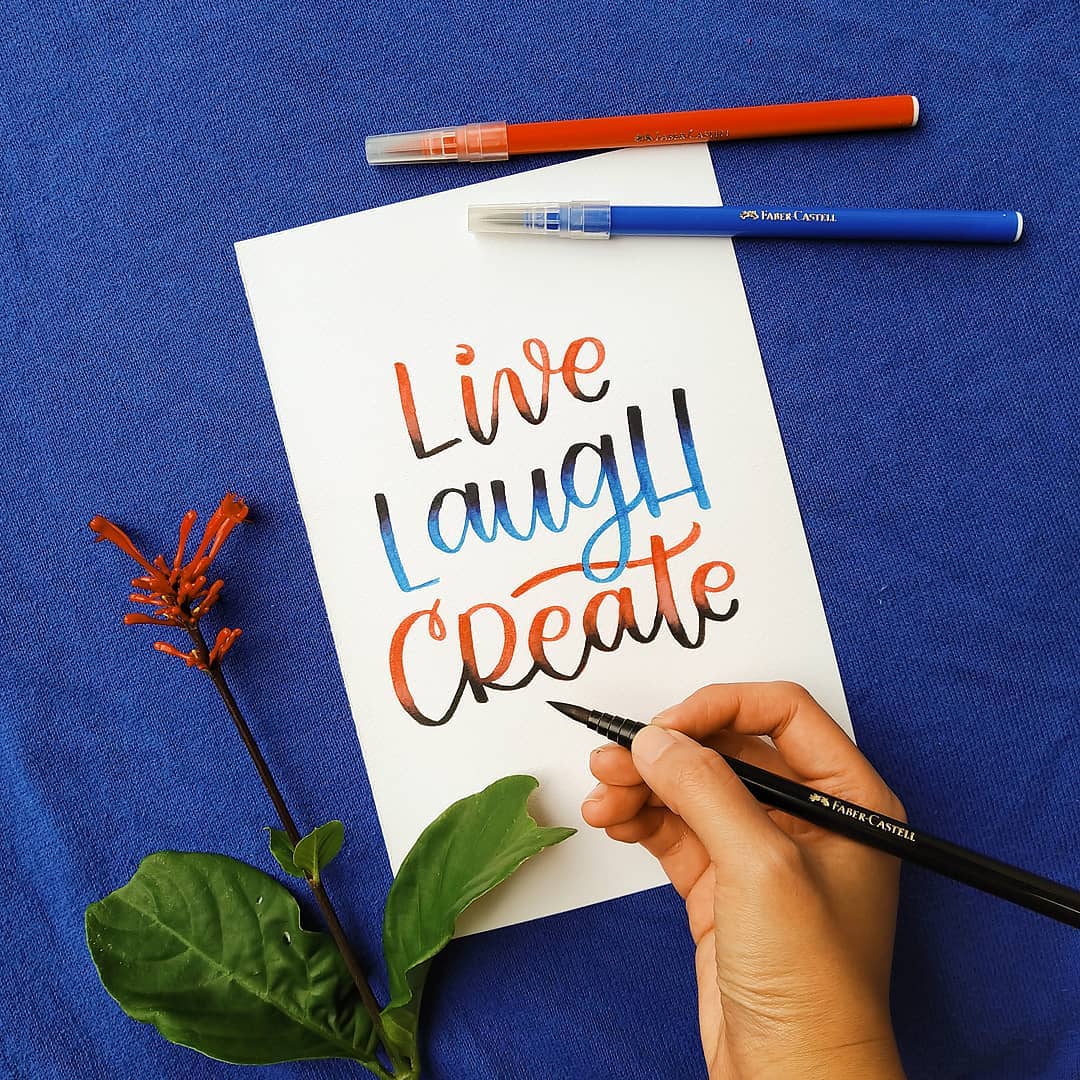 FABER-CASTELL
FABER-CASTELL
Live
LaugH
CReate
FABER-CASTELL